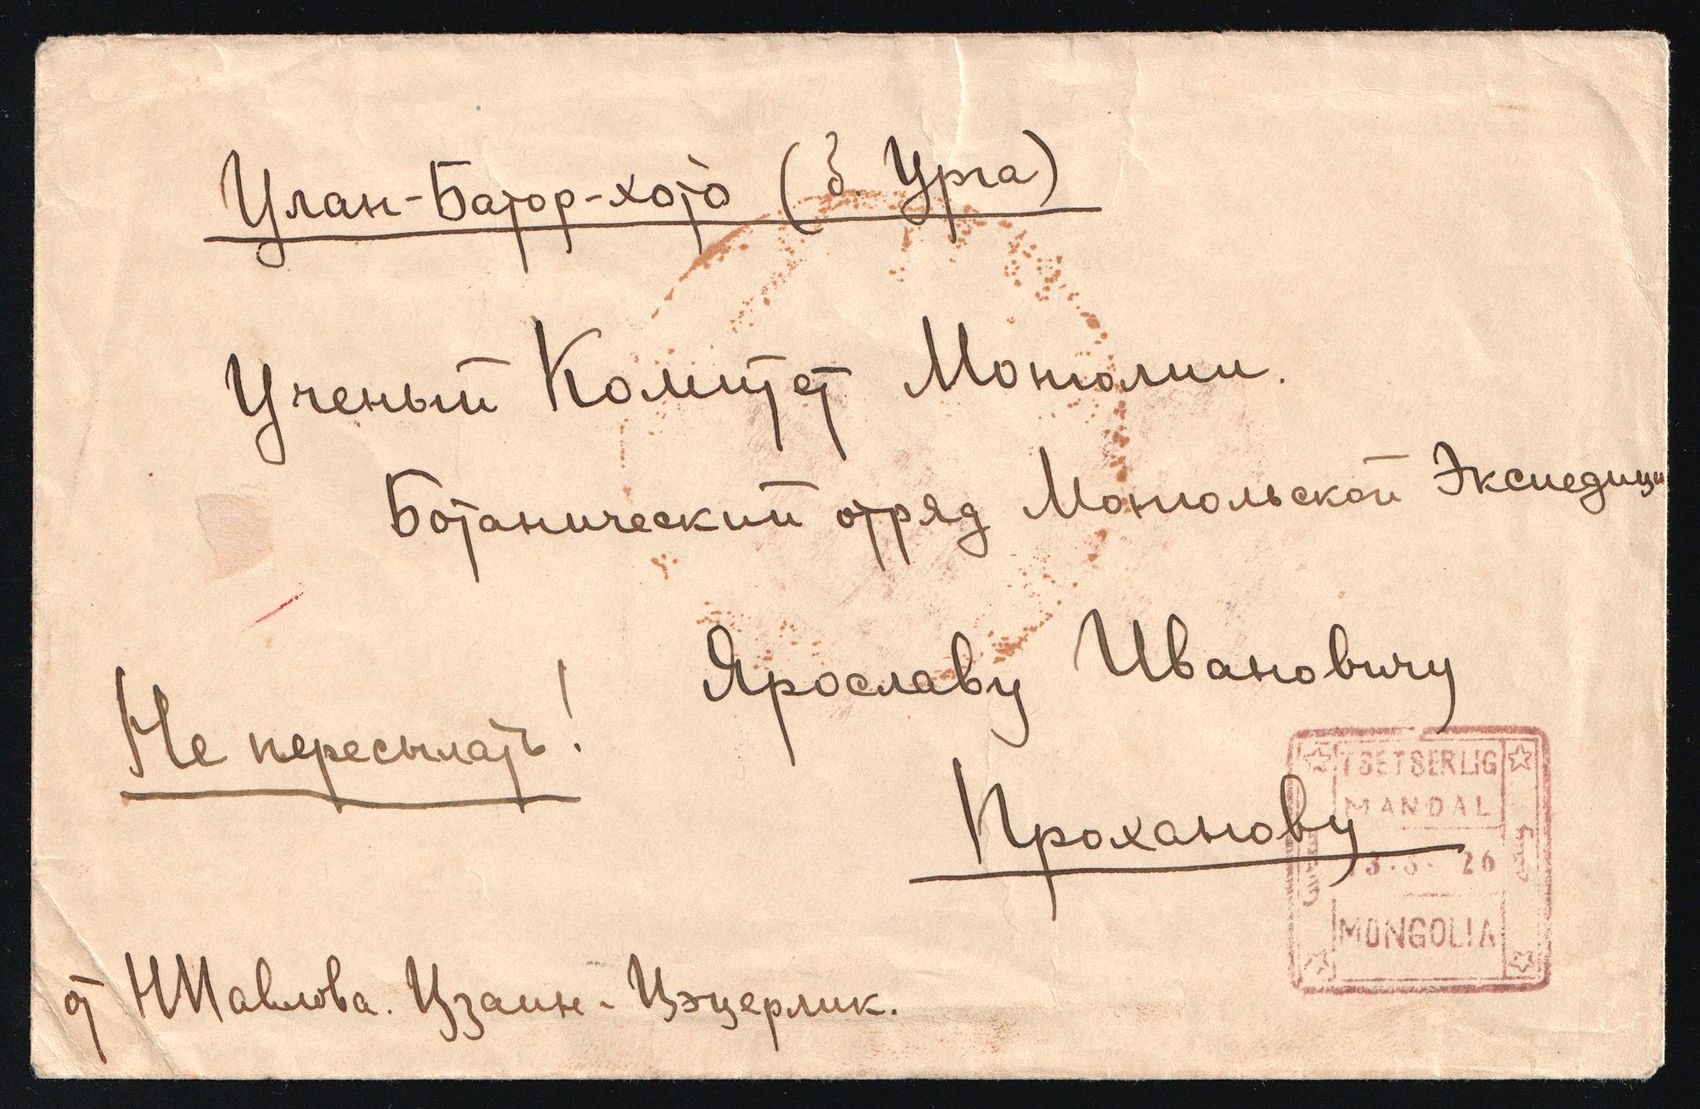 Улан-Батор-хото (б. Урга)
Ученый Комитет Монголии.
Ботанический отряд Монгольской Экспедиции
Ярославу Ивановичу
Не пересылать!
Проханову
TSETSERLIG
MANDAL
26
MONGOLIA
от НПавлова. Цзаин-Цэцерлик.